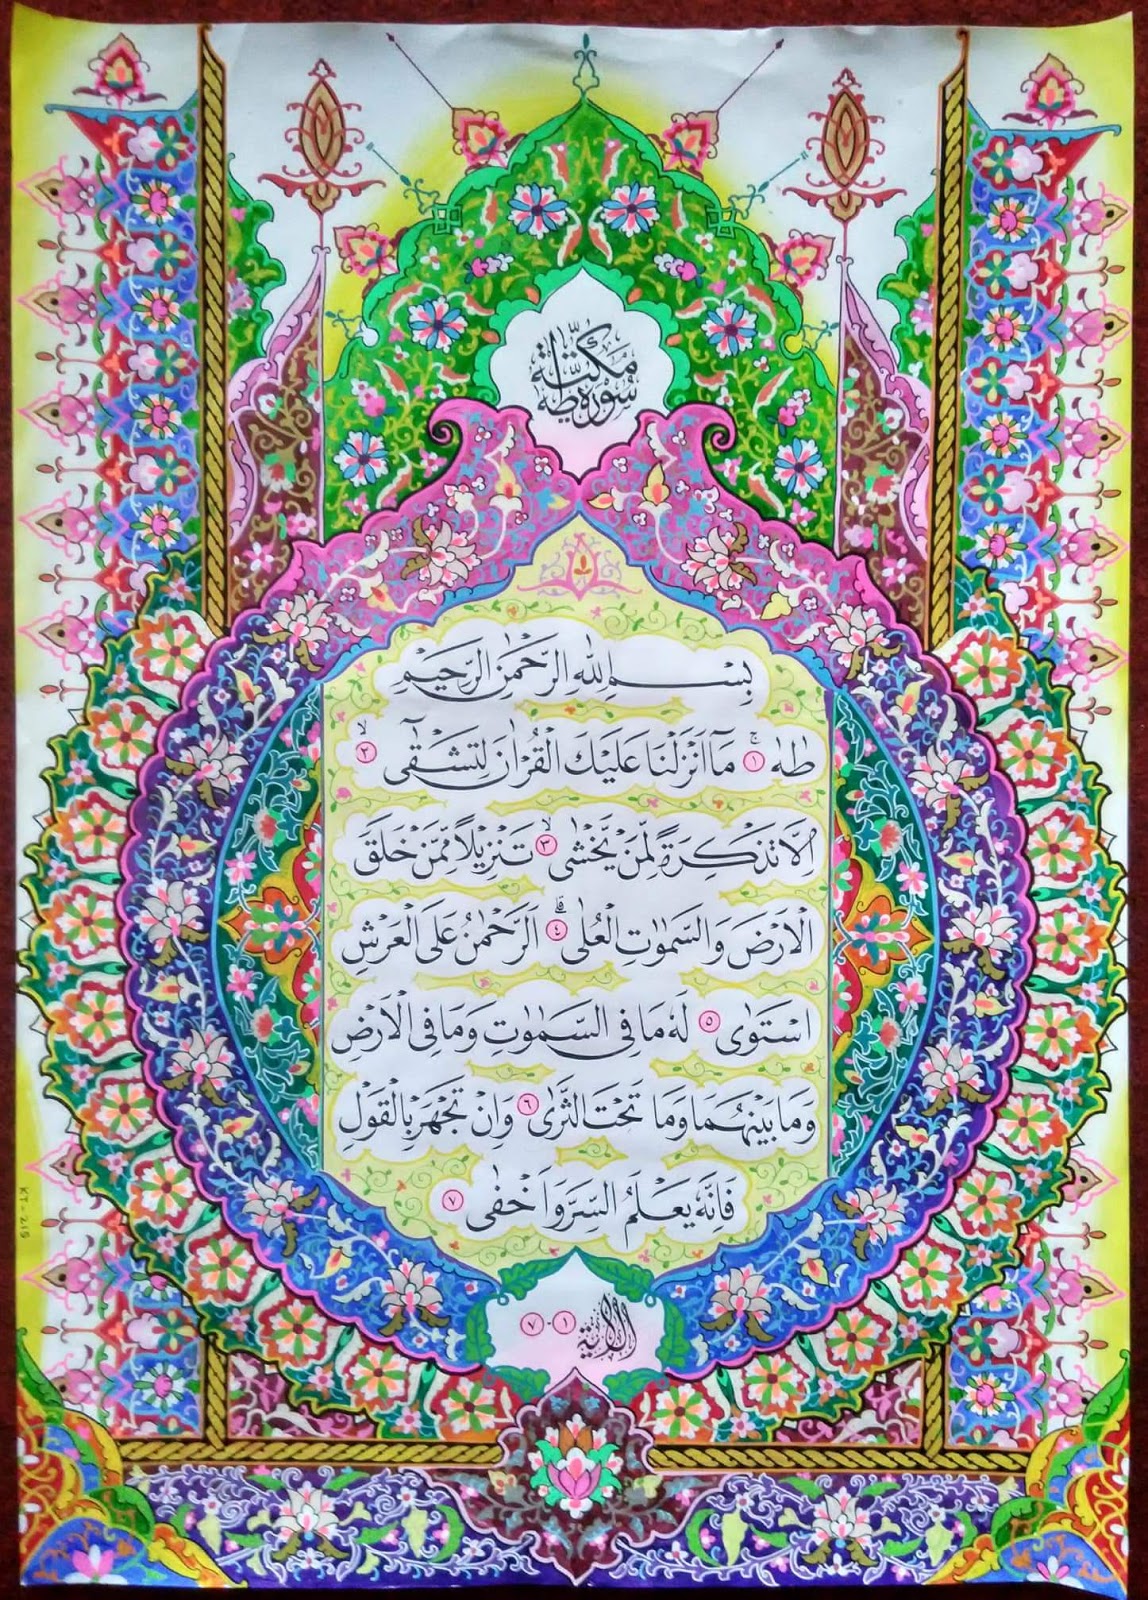 سُوْرَةُ طٰهٰ
مَكِّيَّةٌ
بِسْمِ اللهِ الرَّحْمٰنِ الرَّحِيْمِ
طٰهٰ ۚ ١ مَآ اَنْزَلْنَا عَلَيْكَ الْقُرْاٰنَ لِتَشْقٰٓى ۙ ٢
اِلَّا تَذْكِرَةً لِّمَنْ يَّخْشٰى ۙ ٣ تَنْزِيْلًا مِّمَّنْ خَلَقَ
الْاَرْضَ وَالسَّمٰوٰتِ الْعُلٰى ۗ ٤ اَلرَّحْمٰنُ عَلَى الْعَرْشِ
اسْتَوٰى ٥ لَهٗ مَا فِى السَّمٰوٰتِ وَمَا فِى الْاَرْضِ
وَمَا بَيْنَهُمَا وَمَا تَحْتَ الثَّرٰى ٦ وَاِنْ تَجْهَرْ بِالْقَوْلِ
فَاِنَّهٗ يَعْلَمُ السِّرَّ وَاَخْفٰى ٧
الاية ١-٧
KT-215